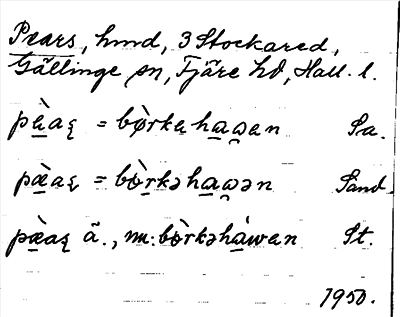 Pears, hmd, 3 Stockared,
Gällinge sn, Fjäre hd, Hall. l.
pæ̀aȿ = bø̀rkehaωen Sa.
pæ̀aȿ = bò̱rkəhaωən Sand.
pæ̀aȿ ä., nu: bø̀rkəhàwen St.
1950.